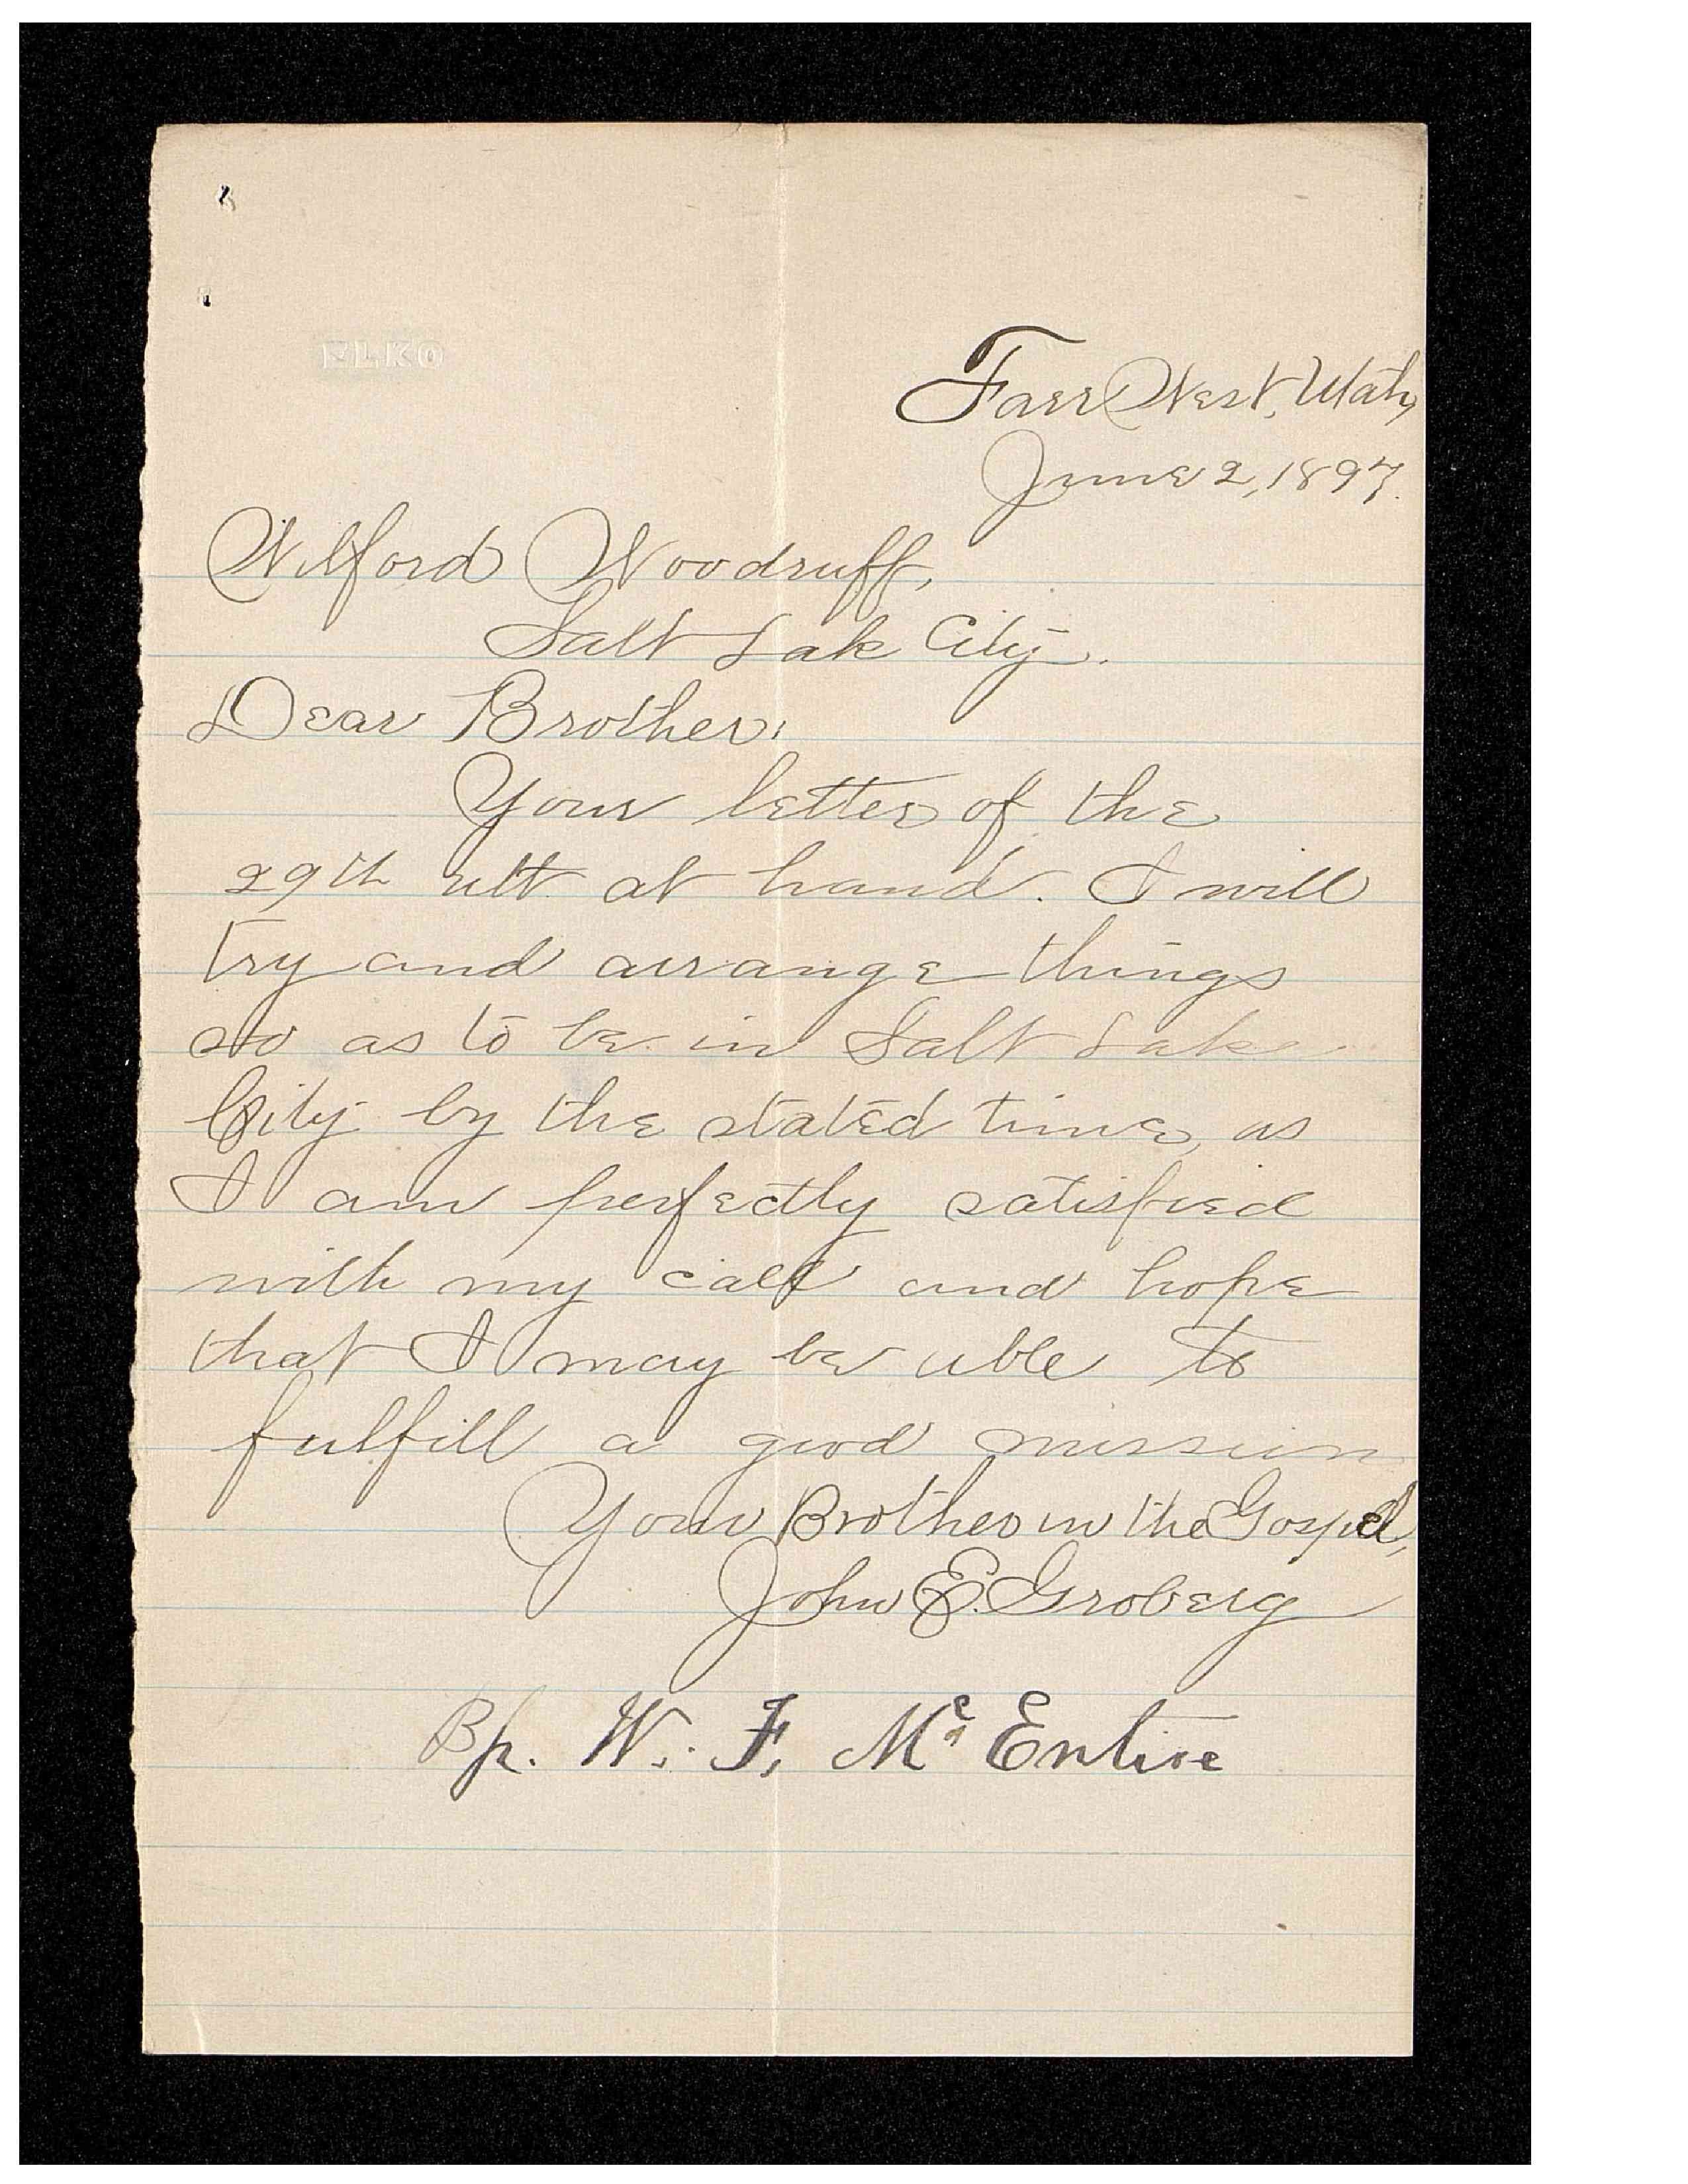 ELKO
Farr West, Utah,
June 2, 1897.
Wilford Woodruff,
Salt Lak City.
Dear Brother:
Your letter of the
29th ult at hand. I will
try and arrange things
so as to be in Salt Lake
City by the stated time, as
I am perfectly satisfied
with my call and hope
that I may be able to
fulfill a good mission
Your Brother in the Gospel,
John E. Groberg
Bp. W. F. Mc Entire